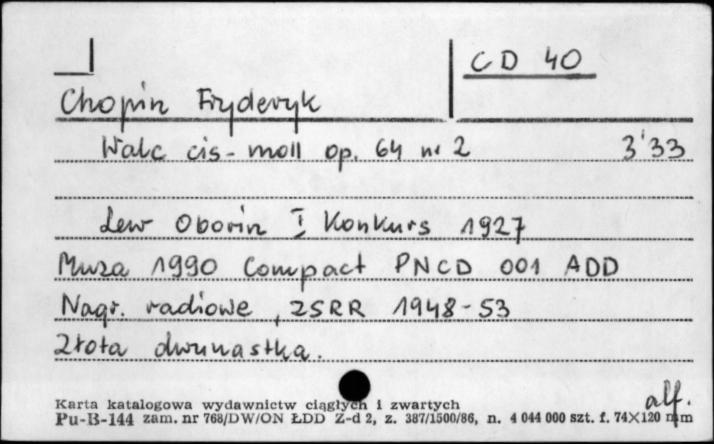 CD 40
Chopin Fryderyk
Walc cis-moll op. 64 nr 2 3'33
Lew Oborin I Konkurs 1927
Muza 1990 Compact PNCD 001 ADD
Nagr. radiowe, ZSRR 1948-53
Złota dwunastka.
alf.
Karta katalogowa wydawnictw ciągłych i zwartych
Pu-B-144 zam. nr 768/DW/ON ŁDD Z-d 2, z. 387/1500/86, n. 4 044 000 szt. f. 74×120 mm